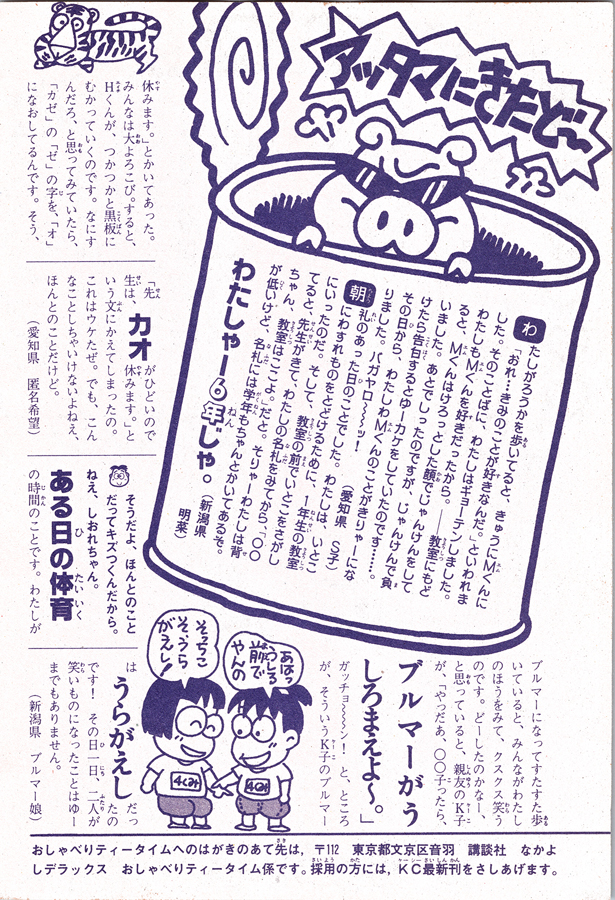 アッタマにきたど〜
わたしがろうかを歩いてると、きゅうにMくんに
「おれ…きみのことが好きなんだ。」といわれま
した。そのことばに、わたしはギョーテンしました。
わたしもMくんを好きだったから。――教室にもど
ると、Mくんはけろっとした顔でじゃんけんをして
いました。あとでしったのですが、じゃんけんで負
けたら告白するとゆーカケをしていたのです……。
その日から、わたしわMくんのことがきりゃーにな
りました。バカヤロ〜〜〜ッ!
(愛知県 S子)
朝礼のあった日のことでした。わたしは、いとこ
にわすれものをとどけるために、1年生の教室
にいったのだ。そして、教室の前でいとこをさがし
てると、先生がきて、わたしの名札をみてから、「〇〇
ちゃん、教室はここよ。」だと。そりゃーわたしは背
が低いけど、名札には学年もちゃんとかいてあるぞ。
わたしゃー6年じゃ。
(新潟県 明菜)
休みます。」とかいてあった。
みんなは大よろこび。すると、
Hくんが、つかつかと黒板に
むかっていくのです。なにす
んだろ、と思ってみていたら、
「カゼ」の「ゼ」の字を、「オ」
になおしてるんです。そう、
「先生は、カオがひどいので
休みます。」と
いう文にかえてしまったの。
これはウケたぜ。でも、こん
なことしちゃいけないよねえ、
ほんとのことだけど。
(愛知県 匿名希望)
そうだよ、ほんとのこと
だってキズつくんだから。
ねえ、しおれちゃん。
ある日の体育
の時間のことです。わたしが
ブルマーになってすたすた歩
いていると、みんながわたし
のほうをみて、クスクス笑う
のです。どーしたのかなー、
と思っていると、親友のK子
が、「やっだあ、〇〇子ったら、
ブルマーがう
しろまえよ〜。」
ガッチョ〜〜〜ン! と、ところ
が、そういうK子のブルマー
は うらがえし だっ
たの
です! その日一日、二人が
笑いものになったことはゆー
までもありません。
(新潟県 ブルマー娘)
あはっ
うしろ
前で
やんの
そっちこ
そ、うら
がえし!
4くみ
4くみ
おしゃべりティータイムへのはがきのあて先は、〒112 東京都文京区音羽 講談社 なかよ
しデラックス おしゃべりティータイム係です。採用の方には、KC最新刊をさしあげます。